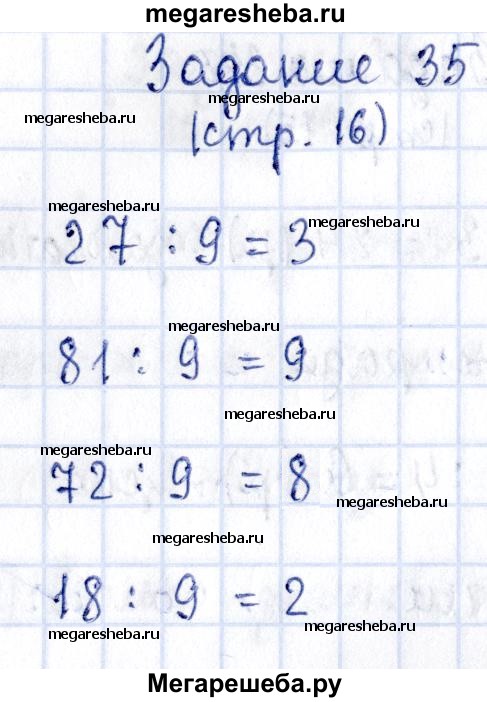 megaresheba.ru
Задание 35
megaresheba.ru
megaresheba.ru
(стр. 16)
megaresheba.ru
megaresheba.ru
27 : 9 = 3
megaresheba.ru
81 : 9 = 9
megaresheba.ru
megaresheba.ru
72 : 9 = 8
megaresheba.ru
megaresheba.ru
18 : 9 = 2
megaresheba.ru
megaresheba.ru
Мегарешеба.ру